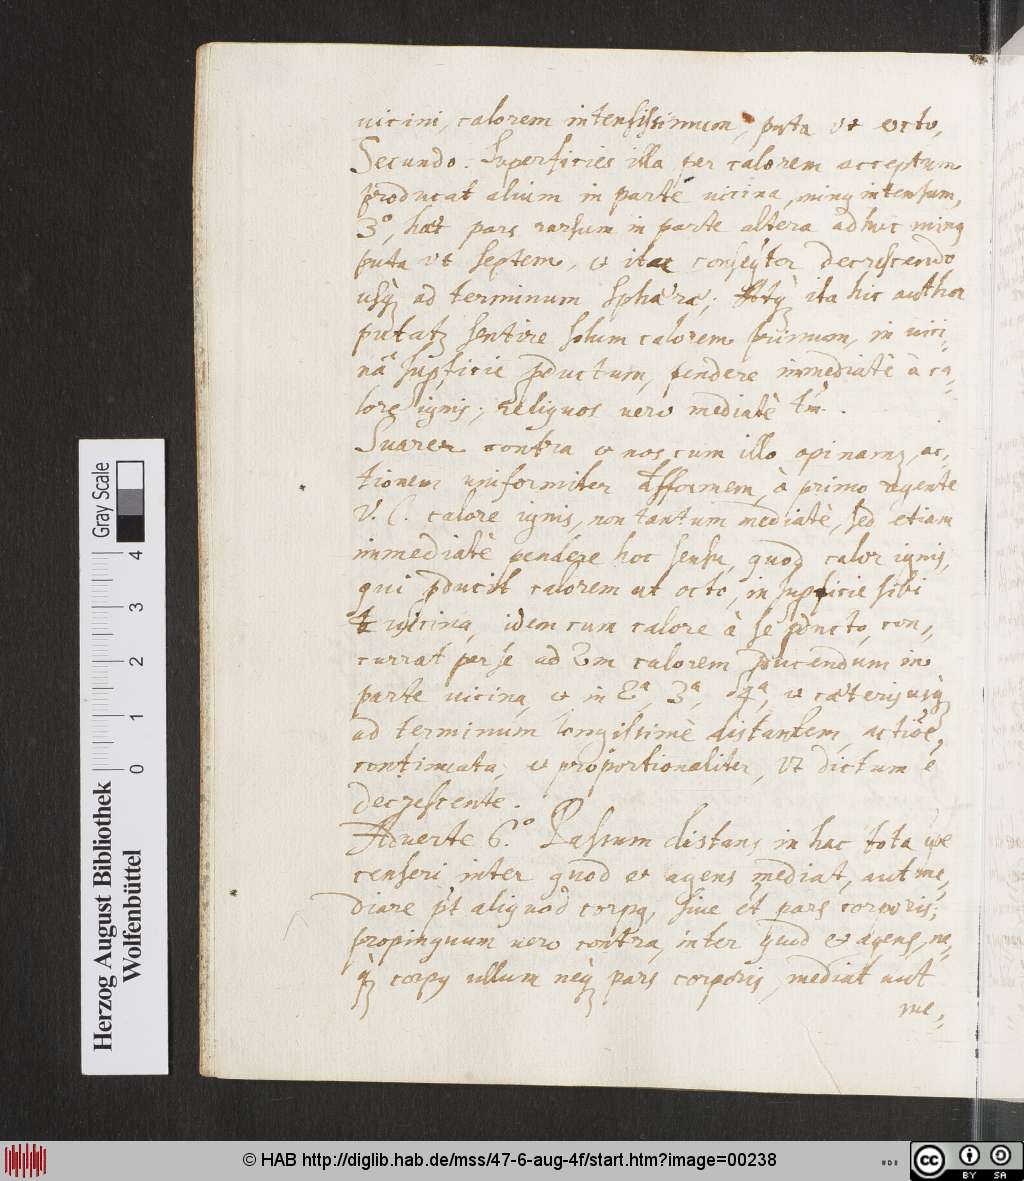 vicini, calorem intensissimum, puta vt octo,
Secundo. Superficies illa per calorem acceptum
producat alium in parte vicina, minꝰ intensum,
3º, hæc pars rursum in parte altera adhuc minꝰ
puta vt septem, & ita conseqter decrescendo
usq; ad terminum sphæræ; Atq; ita hic author
putat sentire solum calorem primum, in vici-
nâ supficie pductum, pendere immediatè à ca-
lore ignis; reliquos vero mediatè tm.
Suarez contra & nos cum illo opinamꝰ, ac-
tionem uniformiter difformem, à primo agente
V. C. calore ignis, non tantum mediatè, sed etiam
immediatè pendere hoc sensu, quod calor ignis,
qui pducit calorem ut octo, in supficie sibi
vicina, idem cum calore à se pducto, con-
currat per se ad 2m calorem pducendum in
parte vicina, & in 2ª, 3ª, 4ª, & cæteris usq;
ad terminum longissimè distantem, actiõe,
continuata, & proportionaliter, vt dictum ẽ
decrescente.
Adverte 6º. Passum distans in hac tota
censeri inter quod et agens mediat, aut me-
diare pt aliquod corpꝰ, sive et pars corporis;
propinquum vero contra, inter quod et agens, ne-
q; corpꝰ ullum neq; pars corporis, mediat aut
me-
Herzog August Bibliothek
Wolfenbüttel
Gray Scale
0 1 2 3 4
© HAB http://diglib.hab.de/mss/47-6-aug-4f/start.htm?image=00238
cc BY SA